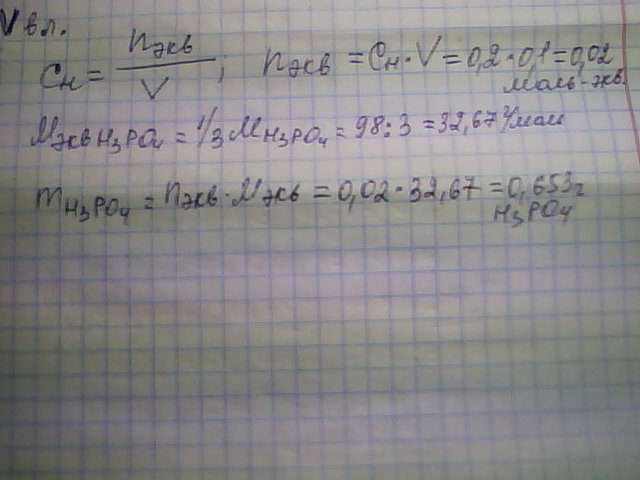 V в л.
Cн = nэкв / V ; nэкв = Cн · V = 0,2 · 0,1 = 0,02
моль-экв
Mэкв H3PO4 = 1/3 M H3PO4 = 98 : 3 = 32,67 г/моль
m H3PO4 = nэкв · Mэкв = 0,02 · 32,67 = 0,653 г
H3PO4